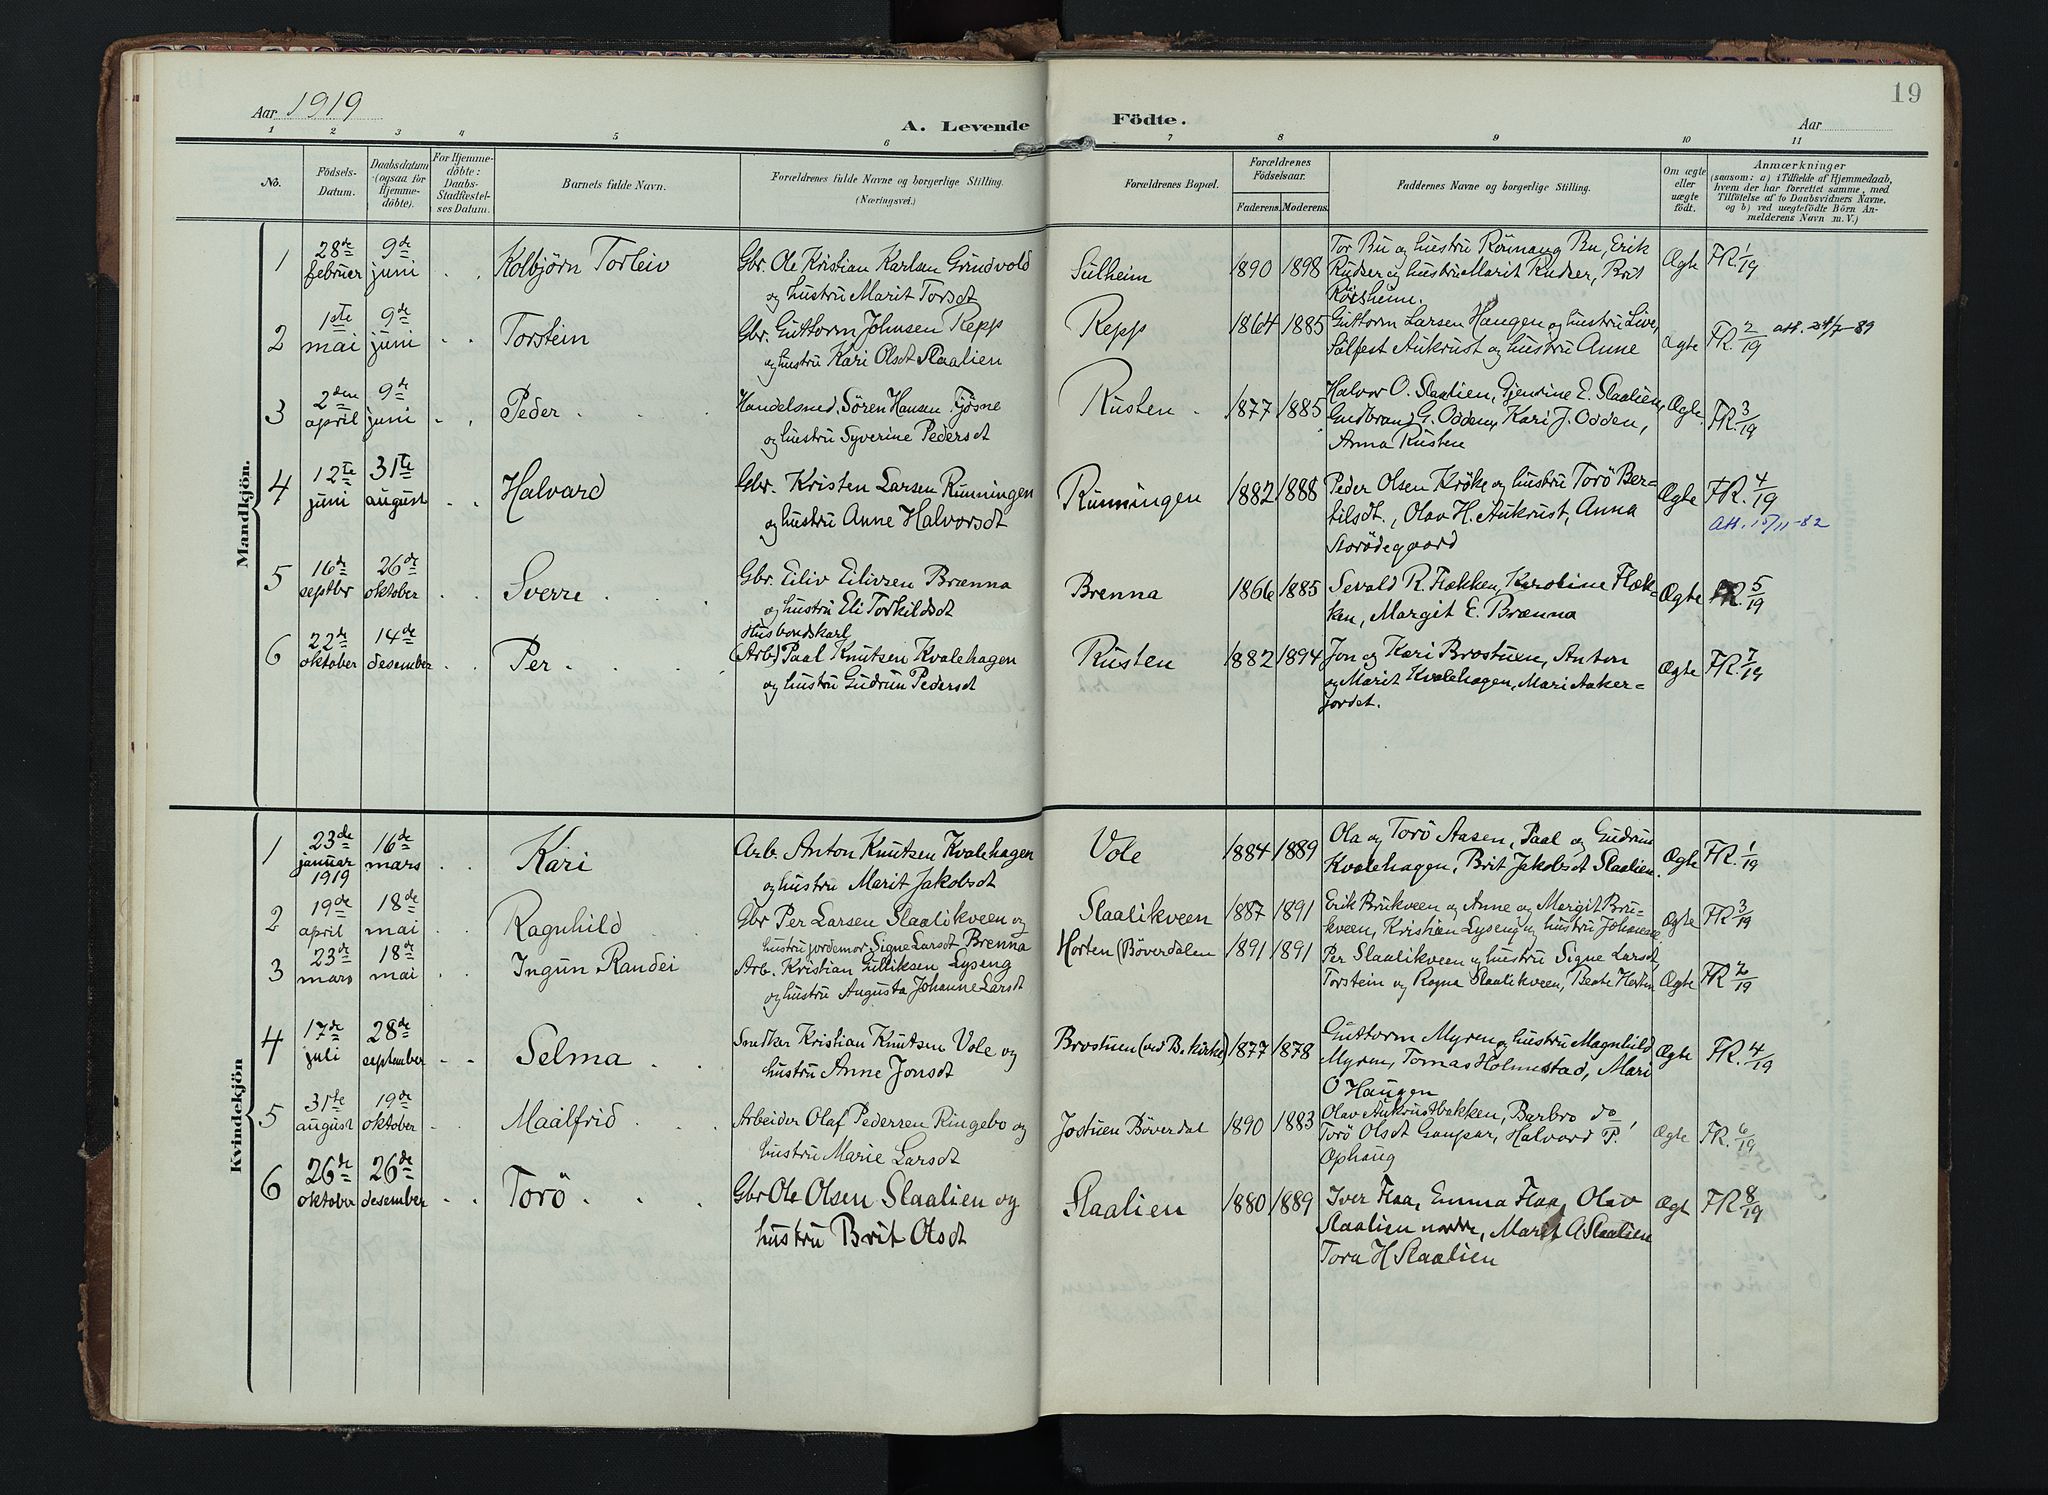 19
Aar 1919
A. Levende Födte.
Aar
1 2 3 4 5 6 7 8 9 10 11
No.
Födsels-
Datum.
Daabsdatum
(ogsaa for
Hjemme-
döbte).
For Hjemme-
döbte:
Daabs-
Stadfæstel-
ses Datum.
Barnets fulde Navn.
Forældrenes fulde Navne og borgerlige Stilling.
(Næringsvei.)
Forældrenes Bopæl.
Forældrenes
Födselsaar.
Faderens. Moderens.
Faddernes Navne og borgerlige Stilling.
Om ægte
eller
uægte
födt.
Anmærkninger
(saasom: a) i Tilfælde af Hjemmedaab,
hvem der har forrettet samme, med
Tilföielse af to Daabsvidners Navne,
og b) ved uægtefödte Börn An-
melderens Navn m. V.)
Mandkjön.
1 28de februer 9de juni Kolbjörn Torleiv Gbr. Ole Kristian Karlsen Grindvold
og hustru Marit Torsdt
Sulheim 1890 1898 Tor Bu og hustru Rönnaug Bu, Erik
Rudser og hustru Marit Rudser, Brit
Röisheim. Ægte FR. 1/19
2 1ste mai 9de juni Torstein Gbr. Guttorm Johnsen Repp
og hustru Kari Olsdt Slaalien
Repp 1864 1885 Guttorm Larsen Haugen og hustru Live,
Sålfest Aukrust og hustru Anne Ægte FR. 2/19 att. 24/7-89
3 2den april 9de juni Peder Handelsmd. Sören Hansen Gjösne
og hustru Syverine Pedersdt
Rusten 1877 1885 Halvor O. Slaalien, Gjendine E. Slaalien,
Gudbrand G. Odden, Kari J. Odden,
Anna Rusten Ægte FR. 3/19
4 12te juni 31te august Halvard Gbr. Kristen Larsen Runningen
og hustru Anne Halvorsdt
Runningen 1882 1888 Peder Olsen Kröke og hustru Torö Ber-
tilsdt., Olav H. Aukrust, Anna
Storödegaard Ægte FR. 4/19
att. 15/11-82
5 16de septbr 26de oktober Sverre Gbr. Eiliv Eilivsen Brænna
og hustru Eli Torkildsdt
Brenna 1866 1885 Sevald R. Flekken, Karoline Flek-
ken, Margit E. Brænna Ægte FR. 5/19
6 22de oktober 14de desember Per Husbondskarl
(Arb) Paal Knutsen Kvalehagen
og hustru Gudrun Pedersdt
Rusten 1882 1894 Jon og Kari Brostuen, Anton
og Marit Kvalehagen, Mari Aaker-
jordet. Ægte FR. 7/19
Kvindekjön
1 23de januar 1919 16de mars Kari Arb. Anton Knutsen Kvalehagen
og hustru Marit Jakobsdt
Vole 1884 1889 Ola og Torö Aasen, Paal og Gudrun
Kvalehagen, Brit Jakobsdt Slaalien. Ægte FR. 1/19
2 19de april 18de mai Ragnhild Gbr Per Larsen Slaalikveen og
hustru jordemor Signe Larsdt Brenna
Slaalikveen 1887 1891 Erik Brukveen og Anne og Margit Bru-
kveen, Kristian Lyseng og hustru Johanne. Ægte FR 3/19
3 23de mars 18de mai Ingun Randei Arb. Kristian Gulliksen Lyseng
og hustru Augusta Johanne Larsdt
Horten (Böverdalen 1891 1891 Per Slaalikveen og hustru Signe Larsdt,
Torstein og Ragna Slaalikveen, Beate Horten Ægte FR 2/19
4 17de juli 28de september Selma Snedker Kristian Knutsen Vole og
hustru Anne Jonsdt
Brostuen (ved B. kirke) 1877 1878 Guttorm Myren og hustru Magnhild
Myren, Tomas Holmestad, Mari
O Haugen Ægte FR. 4/19
5 31te august 19de oktober Maalfrid Arbeider Olaf Pedersen Ringebo og
hustru Marie Larsdt
Jostuen Böverdal 1890 1883 Olav Aukrustbakken, Barbro do,
Torö Olsdt Gaupar, Halvard P.
Ophaug Ægte FR. 6/19
6 26de oktober 26de desember Torö Gbr Ole Olsen Slaalien og
hustru Brit Olsdt
Slaalien 1880 1889 Iver Flaa, Emma Flaa, Olav
Slaalien nordre, Marit A Slaalien
Tora H Slaalien Ægt FR 8/19